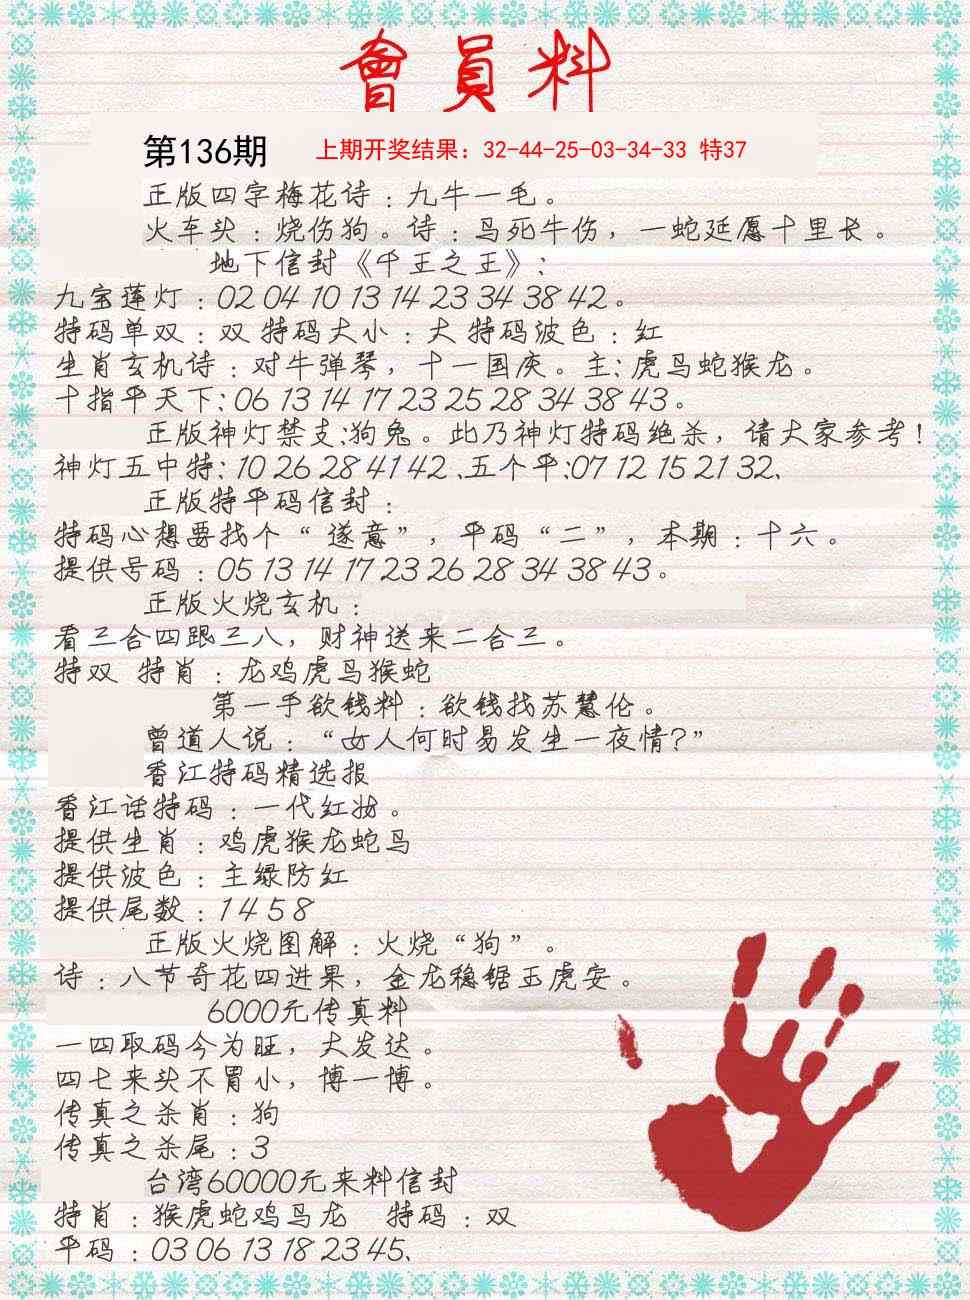 會員料
第136期 上期开奖结果：32-44-25-03-34-33 特37
正版四字梅花诗：九牛一毛。
火车头：烧伤狗。诗：鸟死牛伤，一蛇延愿十里长。
地下信封《千王之王》：
九宝莲灯：02 04 10 13 14 23 34 38 42。
特码单双：双 特码大小：大 特码波色：红
生肖玄机诗：对牛弹琴，十一国庆。主：虎马蛇猴龙。
十指平天下：06 13 14 17 23 25 28 34 38 43。
正版神灯禁支:狗兔。此乃神灯特码绝杀，请大家参考！
神灯五中特：10 26 28 41 42、五个平:07 12 15 21 32、
正版特平码信封：
特码心想要找个“遂意”，平码“二”，本期：十六。
提供号码：05 13 14 17 23 26 28 34 38 43。
正版火烧玄机：
看三合四跟三八，财神送来二合三。
特双 特肖：龙鸡虎马猴蛇
第一手欲钱料：欲钱找苏慧伦。
曾道人说：“女人何时易发生一夜情?”
香江特码精选报
香江话特码：一代红妆。
提供生肖：鸡虎猴龙蛇马
提供波色：主绿防红
提供尾数：1 4 5 8
正版火烧图解：火烧“狗”。
诗：八节奇花四进果，金龙稳锯玉虎安。
6000元传真料
一四取码今为旺，大发达。
四七来头不胃小，博一博。
传真之杀肖：狗
传真之杀尾：3
台湾60000元来料信封
特肖：猴虎蛇鸡马龙 特码：双
平码：03 06 13 18 23 45、